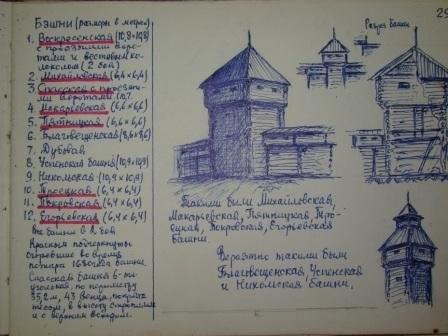 29
Башни (размеры в метрах)
1. Воскресенская (10,9×10,9)
с проезжими воро-
тами и вестовым ко-
локолом (2 боя)
2. Михайловская (6,4×6,4)
3. Спасская с проезжи-
ми воротами
4. Макарьевская (6,6×6,6)
5. Пятницкая (6,6×6,6)
6. Благовещенская (8,6×8,6)
7. Дубовая
8. Успенская башня (10,9×10,9)
9. Никольская (10,9×10,9)
10. Троецкая (6,4×6,4)
11. Покровская (6,4×6,4)
12. Егорьевская (6,4×6,4)
Все башни в 2 боя
Красным подчеркнуты
сгоревшие во время
пожара башни.
Спасская башня 6-ти
угольная, по периметру
43 венца, покрыта
тесом, в высоту стропилами
и с верхним
Разрез башни
Такими были Михайловская,
Макарьевская, Пятницкая, Тро-
ецкая, Покровская, Егорьевская
башни.
Вероятно такими были
Благовещенская, Успенская
и Никольская башни.